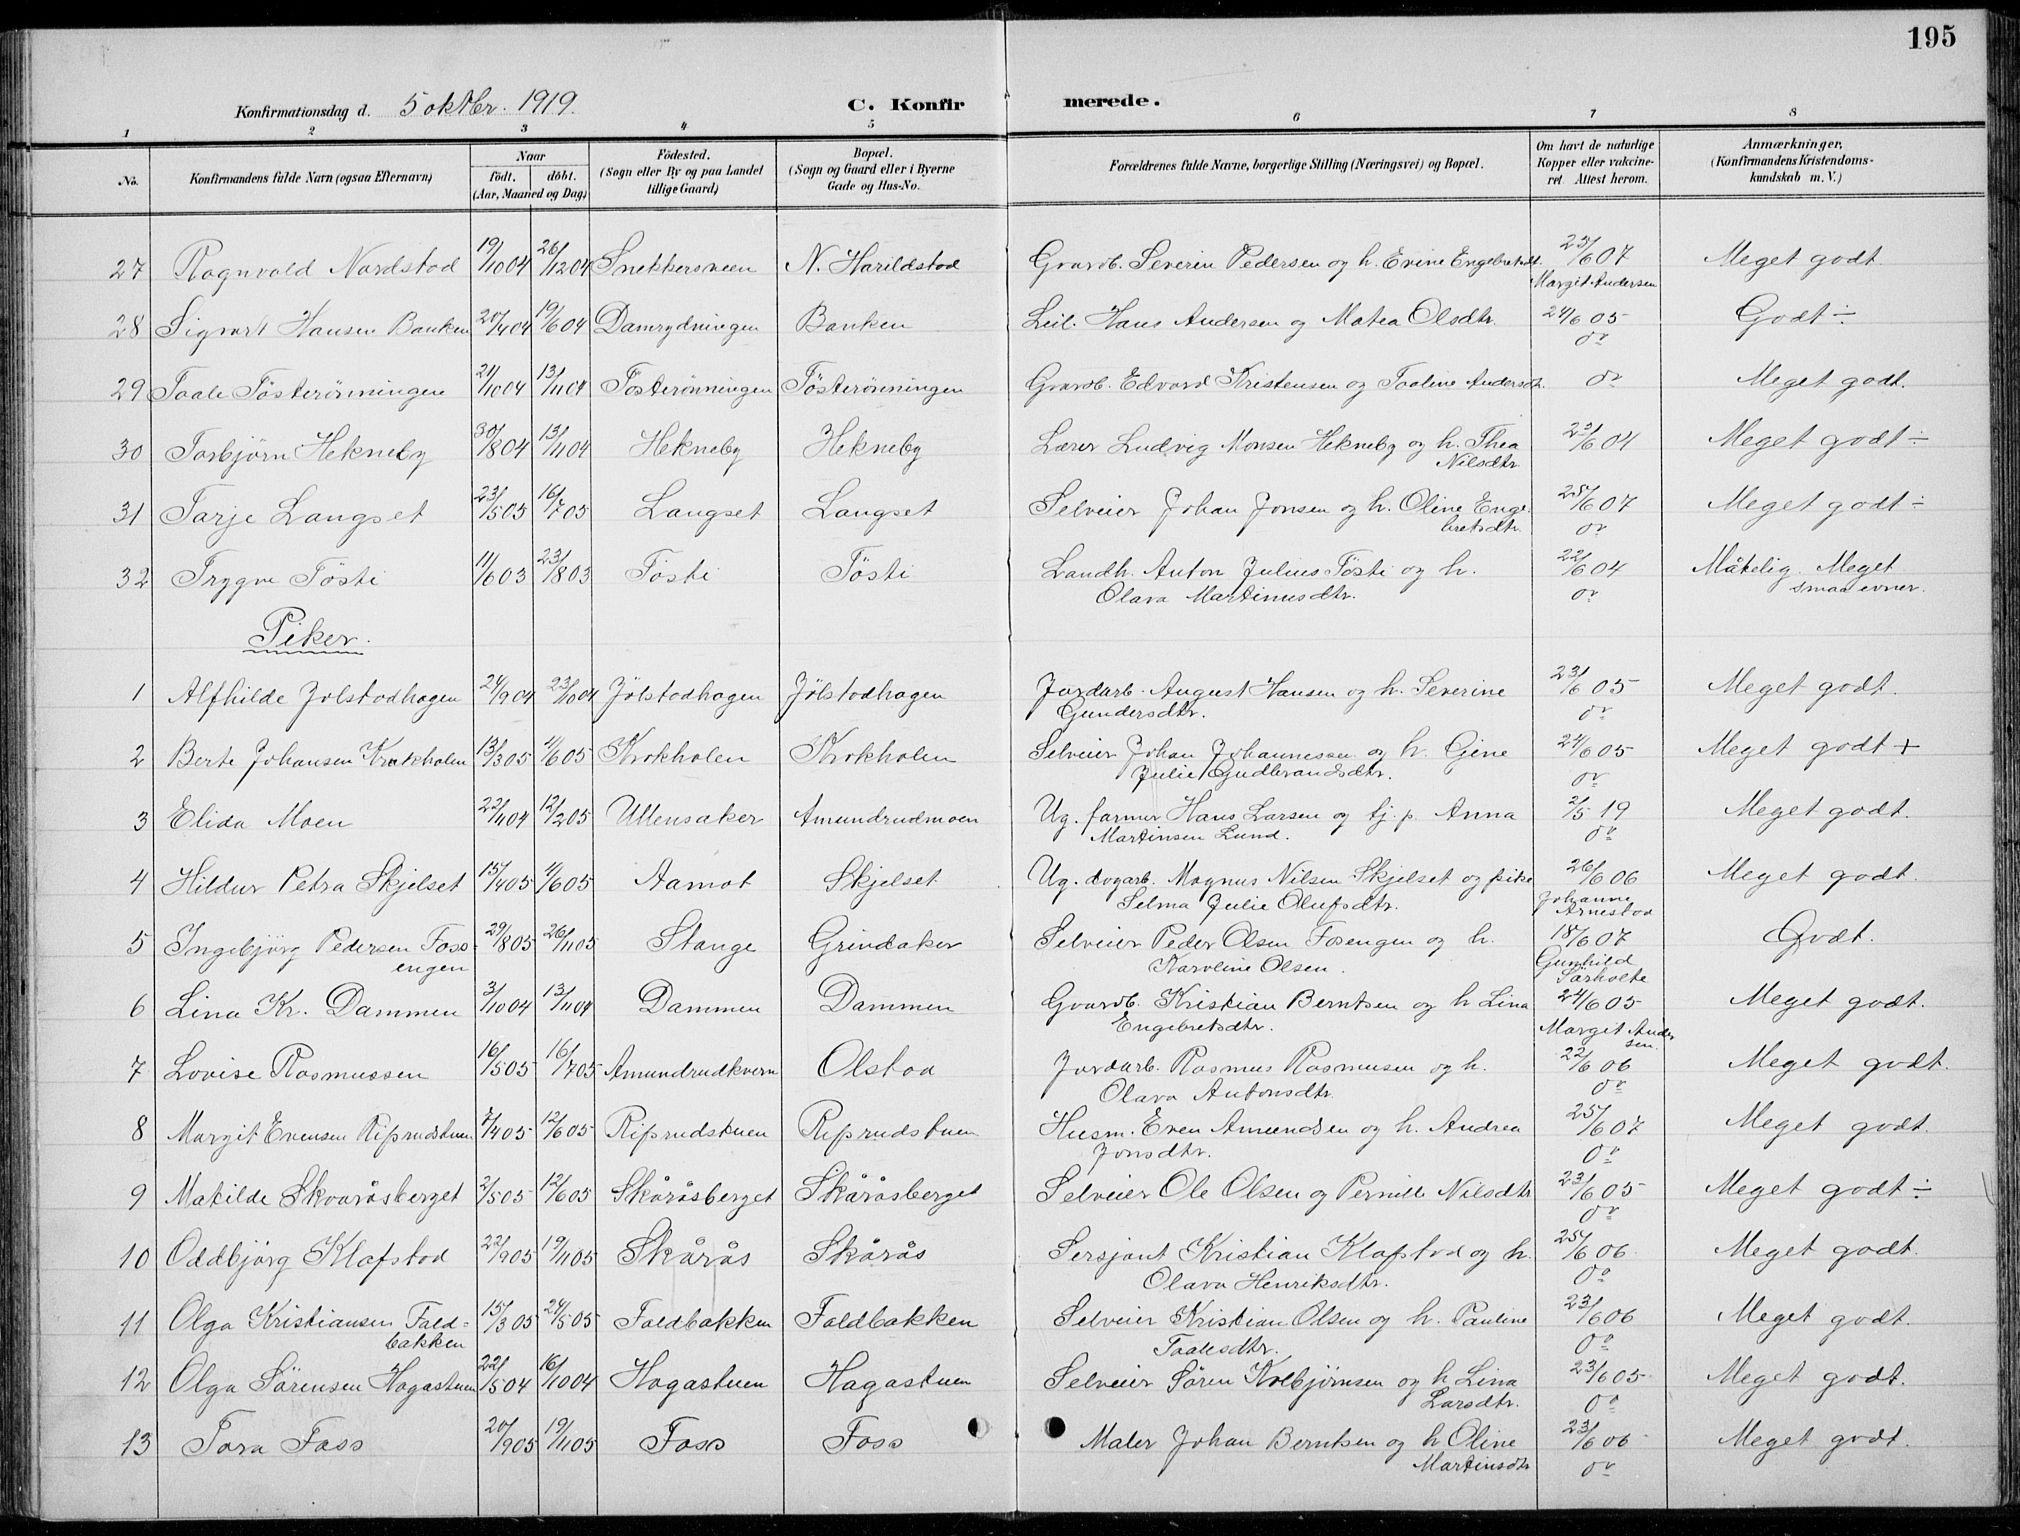 195
Konfirmationsdag d. 5 oktbr. 1919. C. Konfirmerede.
1 2 3 4 5 6 7 8
No. Konfirmandens fulde Navn (ogsaa Efternavn) Naar födt. döbt. (Aar, Maaned og Dag) Födested. (Sogn eller By og paa Landet tillige Gaard) Bopæl. (Sogn og Gaard eller i Byerne Gade og Hus-No. Forældrenes fulde Navne, borgerlige Stilling (Næringsvei) og Bopæl. Om havt de naturlige Kopper eller vakcineret. Attest herom. Anmærkninger, (Konfirmandens Kristendomskundskab m. V.)
27 Ragnvald Nordstad 19/10 04 26/12 04 Snekkersveen N. Harildstad Gaardb. Severin Pedersen og h. Evine Engebretsdt. 23/6 07 Meget godt.
Margit Andersen
28 Sigvart Hansen Banken 20/4 04 19/6 04 Damrydningen Banken Leil. Hans Andersen og Matea Olsdtr. 24/6 05 Godt ÷
do
29 Taale Tösterönningen 21/10 04 13/11 04 Tösterönningen Tösterönningen Gaardb. Edvard Kristensen og Taaline Andersdt. do Meget godt.
30 Torbjörn Hekneby 30/8 04 13/11 04 Hekneby Hekneby Lærer Ludvig Monsen Hekneby og h. Thea 23/6 04 Meget godt ÷
Nilsdtr
31 Tarje Langset 23/5 05 16/7 05 Langset Langset Selveier Johan Jonsen og h. Oline Enge- 25/6 07 Meget godt ÷
bretsdtr. do
32 Trygve Tösti 11/6 03 23/8 03 Tösti Tösti Landh. Anton Julius Tösti og h. 22/6 04 Måtelig. Meget
Olava Martinusdtr. do smaa evner.
Piker.
1 Alfhilde Jölstadhagen 24/9 04 23/10 04 Jölstadhagen Jölstadhagen Jordarb. August Hansen og h. Severine 23/6 05 Meget godt.
Gundersdtr. do
2 Berte Johansen Krokholen 13/3 05 11/6 05 Krokholen Krokholen Selveier Johan Johannessen og h. Gine 24/6 05 Meget godt +
Julie Gudbrandsdtr. do
3 Elida Moen 22/11 04 12/2 05 Ullensaker Amundrudmoen Ug. farmer Hans Larsen og tj. p. Anna 2/5 19 Meget godt.
Martinsen Lund. do
4 Hildur Petra Skjelset 15/4 05 11/6 05 Aamot Skjelset Ug. dagarb. Magnus Nilsen Skjelset og pike 26/6 06 Meget godt.
Selma Julie Olufsdtr. Johanne Arnestad
5 Ingebjörg Pedersen Foss- 29/8 05 26/11 05 Stange Grindaker Selveier Peder Olsen Fosengen og h. 18/6 07 Godt.
engen Karoline Olsen. Gunhild Sörholte
6 Lina Kr. Dammen 3/10 04 13/11 04 Dammen Dammen Gaardb. Kristian Berntsen og h Lina 24/6 05 Meget godt.
Engebretsdtr. Marget Andersen.
7 Lovise Rasmussen 16/5 05 16/7 05 Amundrudkvern Olstad Jordarb. Rasmus Rasmusen og h. 22/6 06 Meget godt.
Olava Antonsdtr. do
8 Margit Evensen Riprudstuen 7/4 05 12/6 05 Riprudstuen Riprudstuen Husm. Even Amundsen og h. Andrea 25/6 07 Meget godt.
Jonsdtr. do
9 Matilde Skaaråsberget 2/5 05 12/6 05 Skåråsberget Skåråsberget Selveier Ole Olsen og Pernille Nilsdtr 23/6 05 Meget godt ÷
do
10 Oddbjörg Klafstad 22/9 05 19/11 05 Skårås Skårås Sersjant Kristian Klafstad og h. 25/6 06 Meget godt.
Olava Henriksdtr. do
11 Olga Kristiansen Fald- 15/3 05 24/5 05 Faldbakken Faldbakken Selveier Kristian Olsen og h. Pauline 23/6 06 Meget godt.
bakken Taalesdtr. do
12 Olga Sörensen Hagastuen 22/5 04 16/10 04 Hagastuen Hagastuen Selveier Sören Kolbjörnsen og h Lina 23/6 05 Meget godt.
Larsdtr. do
13 Tora Foss 20/9 05 19/11 05 Foss Foss Maler Johan Berntsen og h Oline 23/6 06 Meget godt.
Martinsdtr do